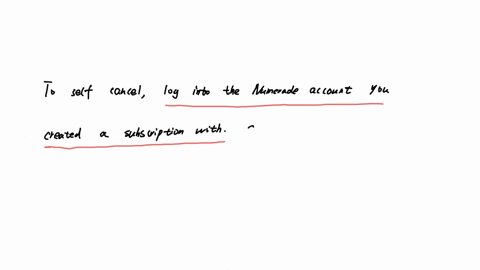 To self cancel, log into the Numerade account you
created a subscription with.